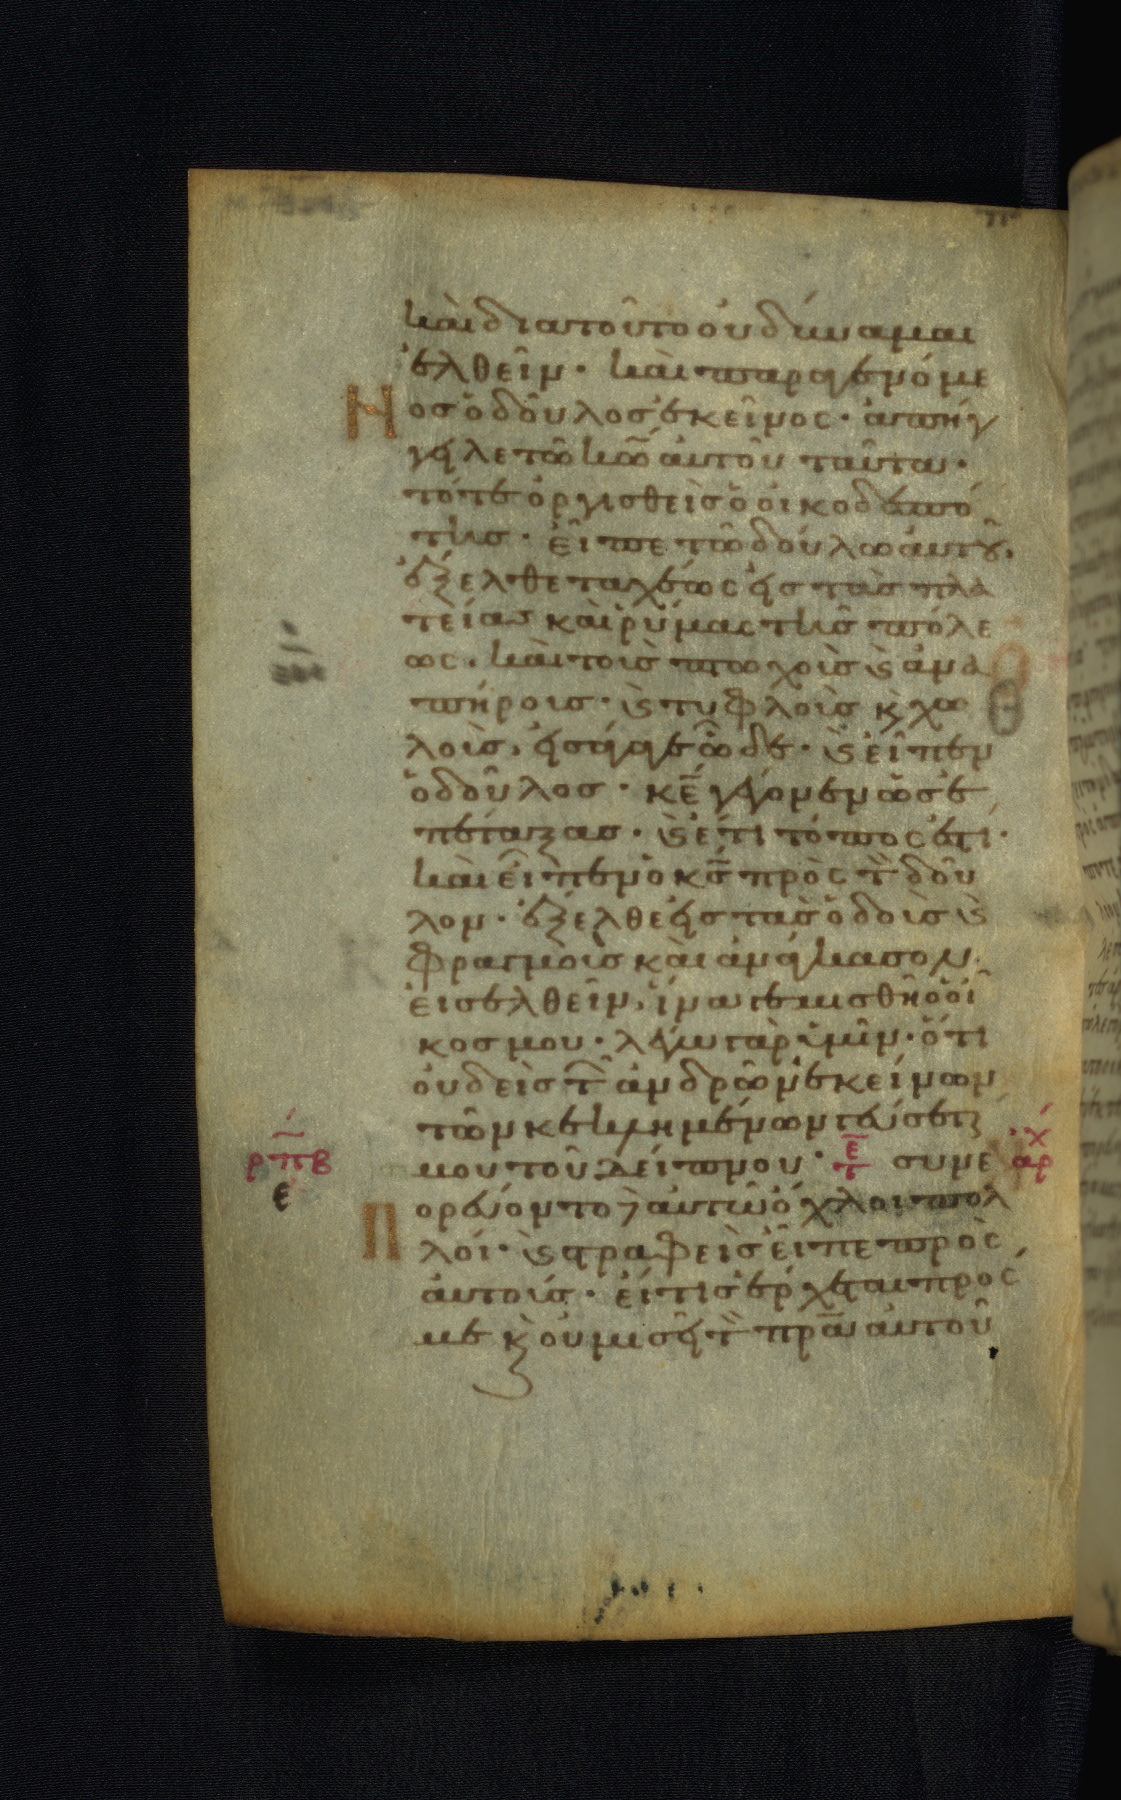 καὶ διατοῦτο οὐ δύναμαι
ἐλθεῖν· καὶ παραγενόμε
Νος ὁ δοῦλος ἐκεῖνος· ἀπήγ
γειλε τῶ κω̅ αὐτοῦ ταῦτα·
τότε ὀργισθεὶς ὁ οἰκοδεσπό
της· εἶπε τῶ δούλω αὐτοῦ·
ἔξελθε ταχέως εἰς τὰς πλα
τείας καὶ ῥύμας τῆς πόλε
ως· καὶ τοὺς πτωχοὺς ϗ ἀνα
πήρους· ϗ τυφλοὺς ϗ χω
λοὺς, εἰσάγαγε ὧδε· ϗ εἶπεν
ὁ δοῦλος· κε̅ γέγονεν ὡς ἐ
πέταξας· ϗ ἔτι τόπος ἐστί·
καὶ εἶπεν ὁ κς̅ πρὸς τὸν δοῦ
λον· ἔξελθε εἰς τὰς ὁδοὺς ϗ
φραγμοὺς καὶ ἀνάγκασον
εἰσελθεῖν, ἵνα γεμισθῆ ὁ οἶ
κος μου· λέγω γὰρ ὑμῖν· ὅτι
οὐδεὶς τῶν ἀνδρῶν ἐκείνων
τῶν κεκλημένων γεύσεταί
μου τοῦ δείπνου· τε̅ συνε ἀρχ
ρπβ
ε
Πορεύοντο δὲ αὐτῶ ὄχλοι πολ
λοί· ϗ στραφεὶς εἶπε πρὸς
αὐτούς· εἴ τις ἔρχεται πρός
με ϗ οὐ μισεῖ τὸν πρα̅ αὐτοῦ